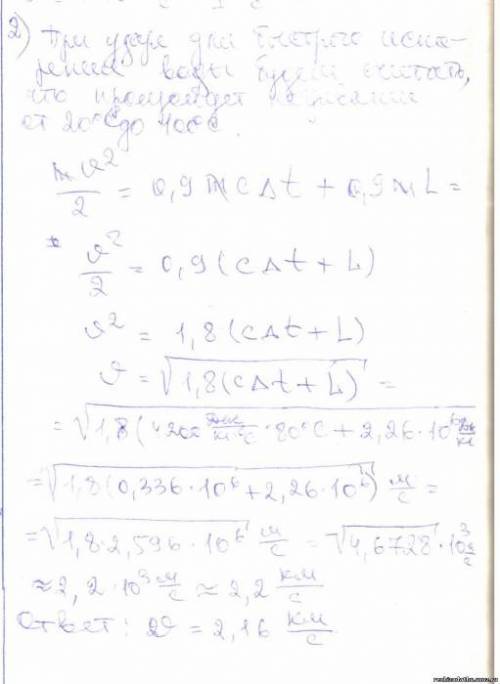 2) При ударе для быстрого испа-
рения воды будем считать,
что происходит нагревание
от 20°C до 100°C.
mϑ²/2 = 0,9 m c Δt + 0,9 m L =
ϑ²/2 = 0,9 (cΔt + L)
ϑ² = 1,8 (cΔt + L)
ϑ = √(1,8(cΔt + L)) =
= √(1,8(4200 Дж/кг°C · 80°C + 2,26·10⁶ Дж/кг
= √(1,8(0,336·10⁶ + 2,26·10⁶)) м/с =
= √(1,8·2,596·10⁶) м/с = √4,6728·10³ м/с
≈ 2,2·10³ м/с ≈ 2,2 км/с
Ответ: ϑ = 2,16 км/с